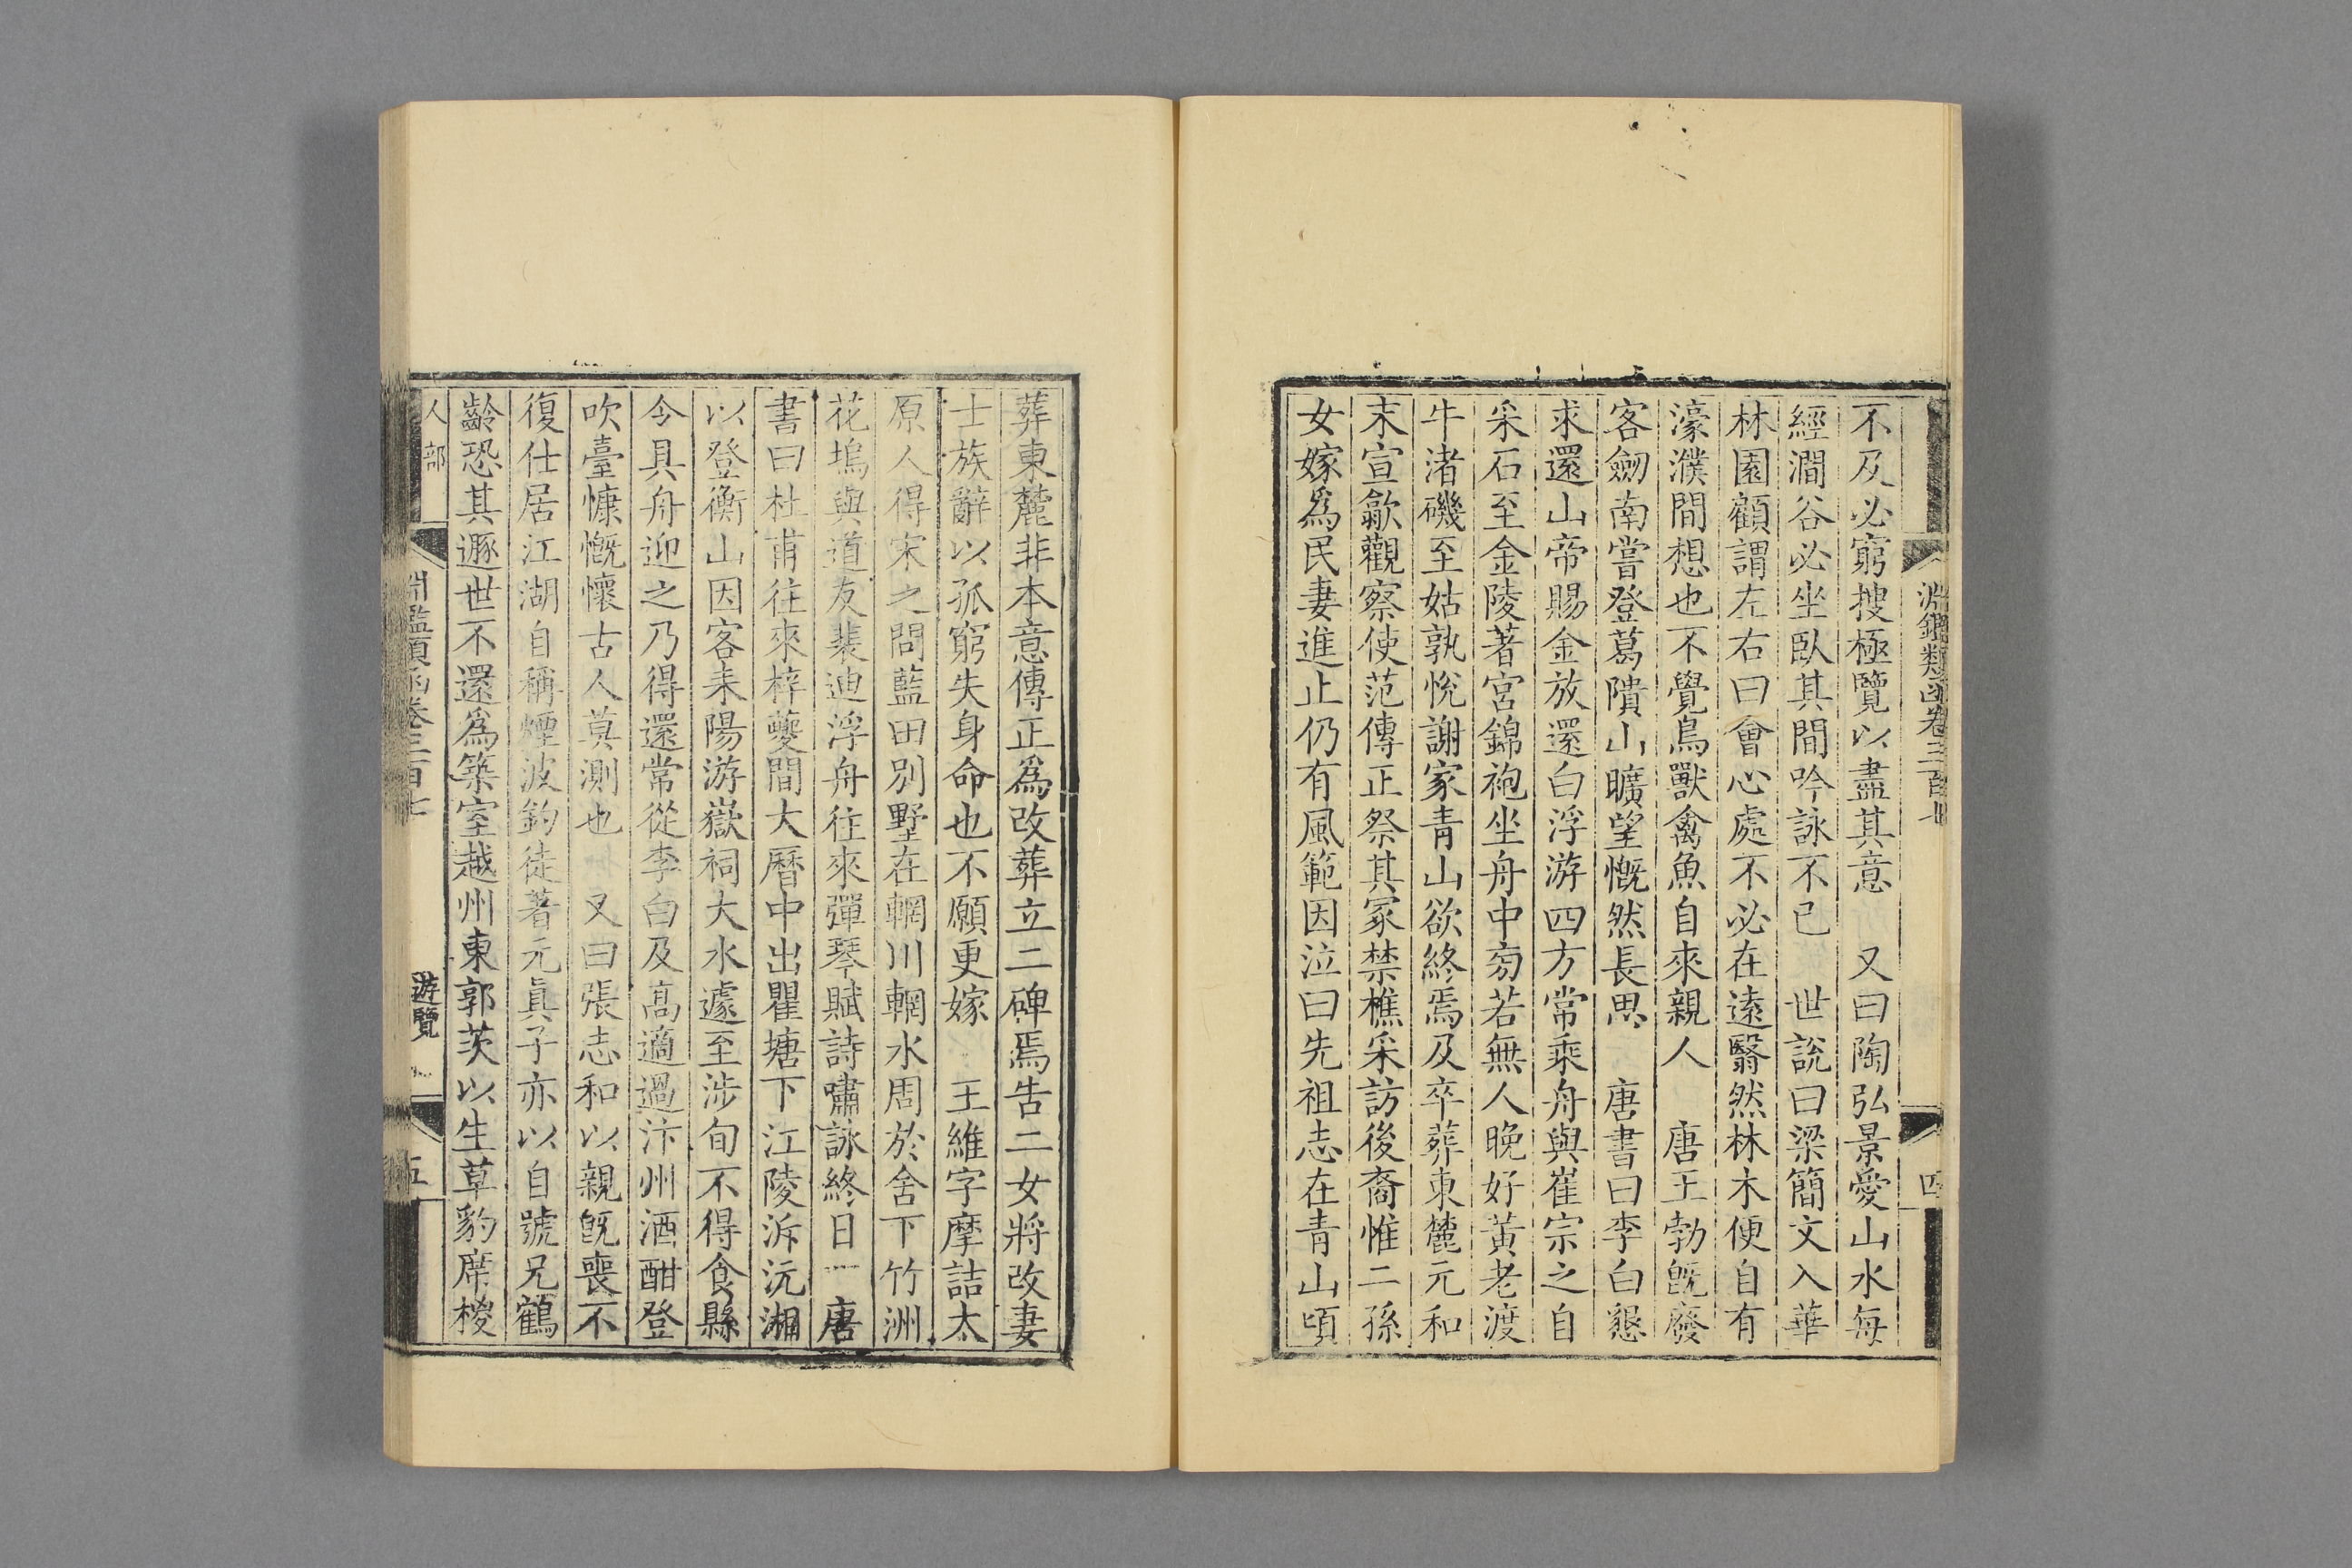 淵鑑類函卷三百七
四
不及必窮搜極覽以盡其意 又曰陶弘景愛山水每
經澗谷必坐臥其間吟詠不已 世說曰梁簡文入華
林園顧謂左右曰會心處不必在遠翳然林木便自有
濠濮間想也不覺鳥獸禽魚自來親人 唐王勃旣廢
客劒南嘗登葛隤山曠望慨然長思 唐書曰李白懇
求還山帝賜金放還白浮游四方常乘舟與崔宗之自
采石至金陵著宮錦袍坐舟中旁若無人晚好黃老渡
牛渚磯至姑孰悅謝家青山欲終焉及卒葬東麓元和
末宣歙觀察使范傳正祭其冢禁樵采訪後裔惟二孫
女嫁爲民妻進止仍有風範因泣曰先祖志在青山頃
葬東麓非本意傳正爲改葬立二碑焉告二女將改妻
士族辭以孤窮失身命也不願更嫁 王維字摩詰太
原人得宋之問藍田別墅在輞川輞水周於舍下竹洲
花塢與道友裴迪浮舟往來彈琴賦詩嘯詠終日 唐
書曰杜甫往來梓夔間大曆中出瞿塘下江陵泝沅湘
以登衡山因客耒陽游嶽祠大水遽至涉旬不得食縣
令具舟迎之乃得還常從李白及高適過汴州酒酣登
吹臺慷慨懷古人莫測也 又曰張志和以親旣喪不
復仕居江湖自稱煙波釣徒著元眞子亦以自號兄鶴
齡恐其遯世不還爲築室越州東郭茨以生草豹席椶
人部
淵鑑類函卷三百七
遊覽
五